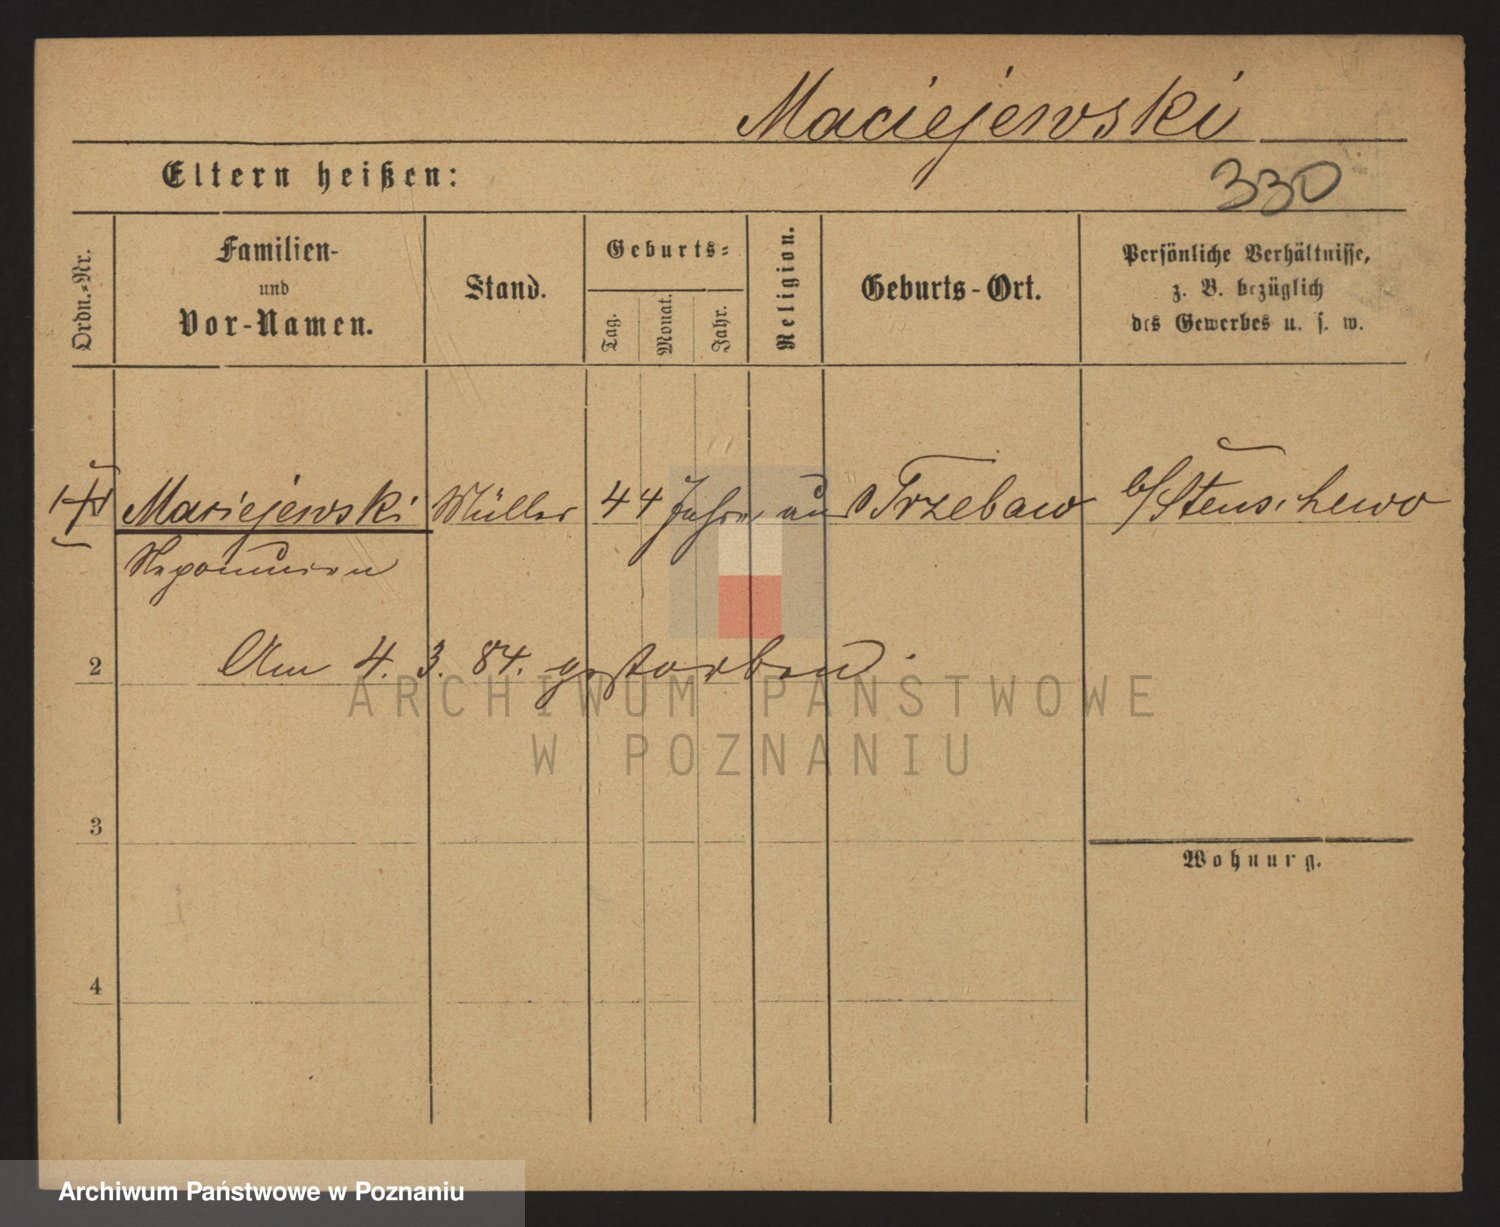 Maciejewski
Eltern heißen:
330
Ordn.-Nr.
Familien-
und
Vor-Namen.
Stand.
Geburts-
Tag.
Monat.
Jahr.
Religion.
Geburts-Ort.
Persönliche Verhältnisse,
z. B. bezüglich
des Gewerbes u. s. w.
Maciejewski Müller 44 Jahre Trzebaw b/ Stenschewo
Nepomucen
2 Am 4. 3. 84. gestorben.
ARCHIWUM PAŃSTWOWE
W POZNANIU
3
Wohnurg.
4
Archiwum Państwowe w Poznaniu